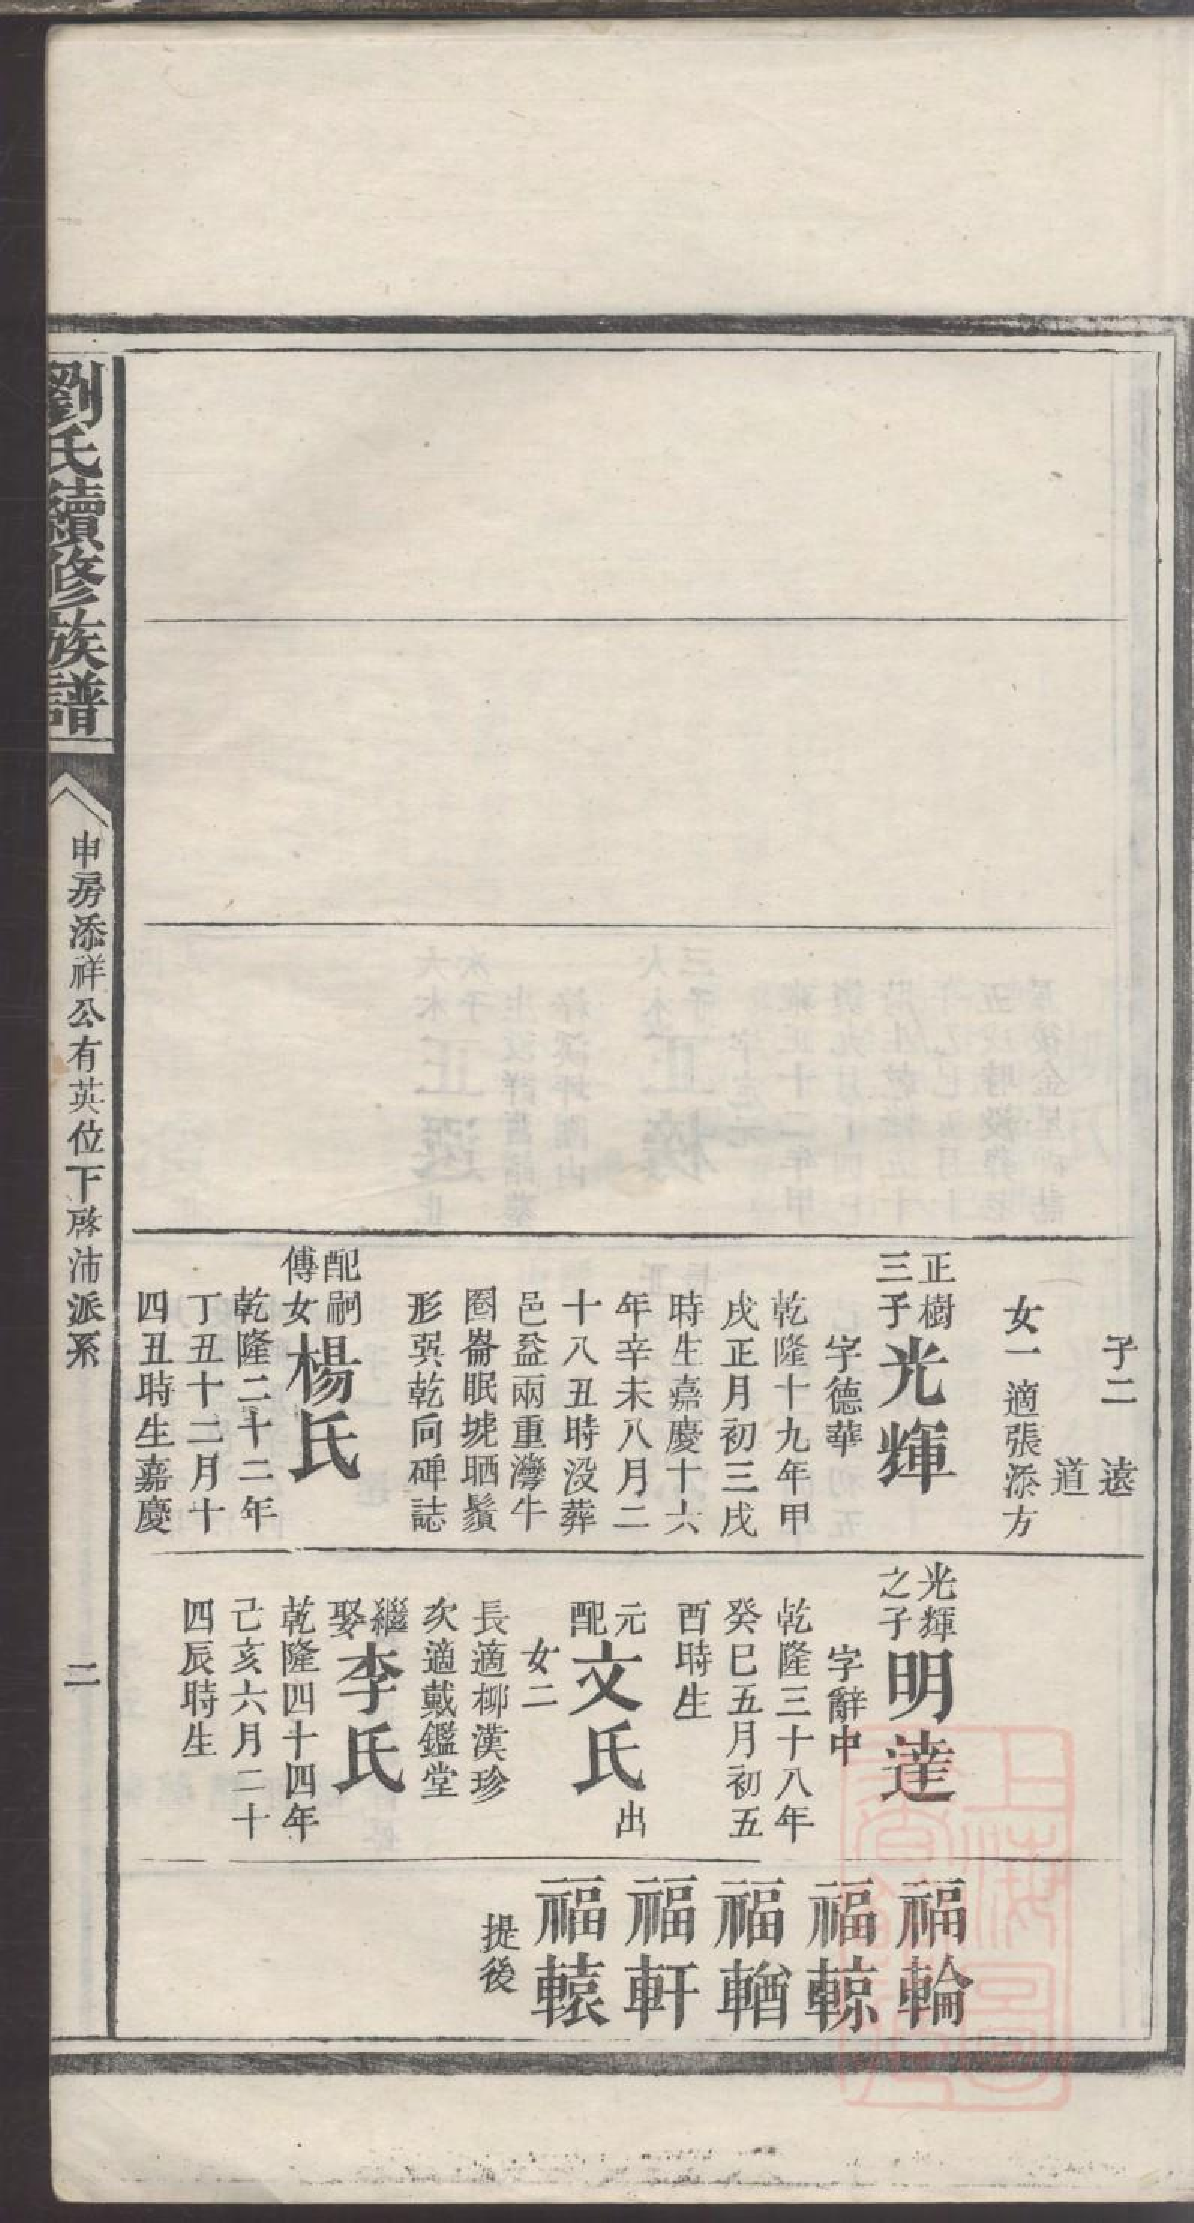 子二 遠
道
女一適張添方
正樹
三子
光輝
字德華
乾隆十九年甲
戌正月初三戌
時生嘉慶十六
年辛未八月二
十八丑時没葬
邑益兩重灣牛
圈崙眠㙈晒鬚
形巽乾向碑誌
配嗣
傅女
楊氏
乾隆二十二年
丁丑十二月十
四丑時生嘉慶
光輝
之子
明達
字辭中
乾隆三十八年
癸巳五月初五
酉時生
元
配
文氏
出
女二
長適柳漢珍
次適戴鑑堂
繼
娶
李氏
乾隆四十四年
己亥六月二十
四辰時生
福輪
福輬
福輶
福軒
福轅
提後
劉氏續修族譜
申房添祥公有英位下啟沛派系
二